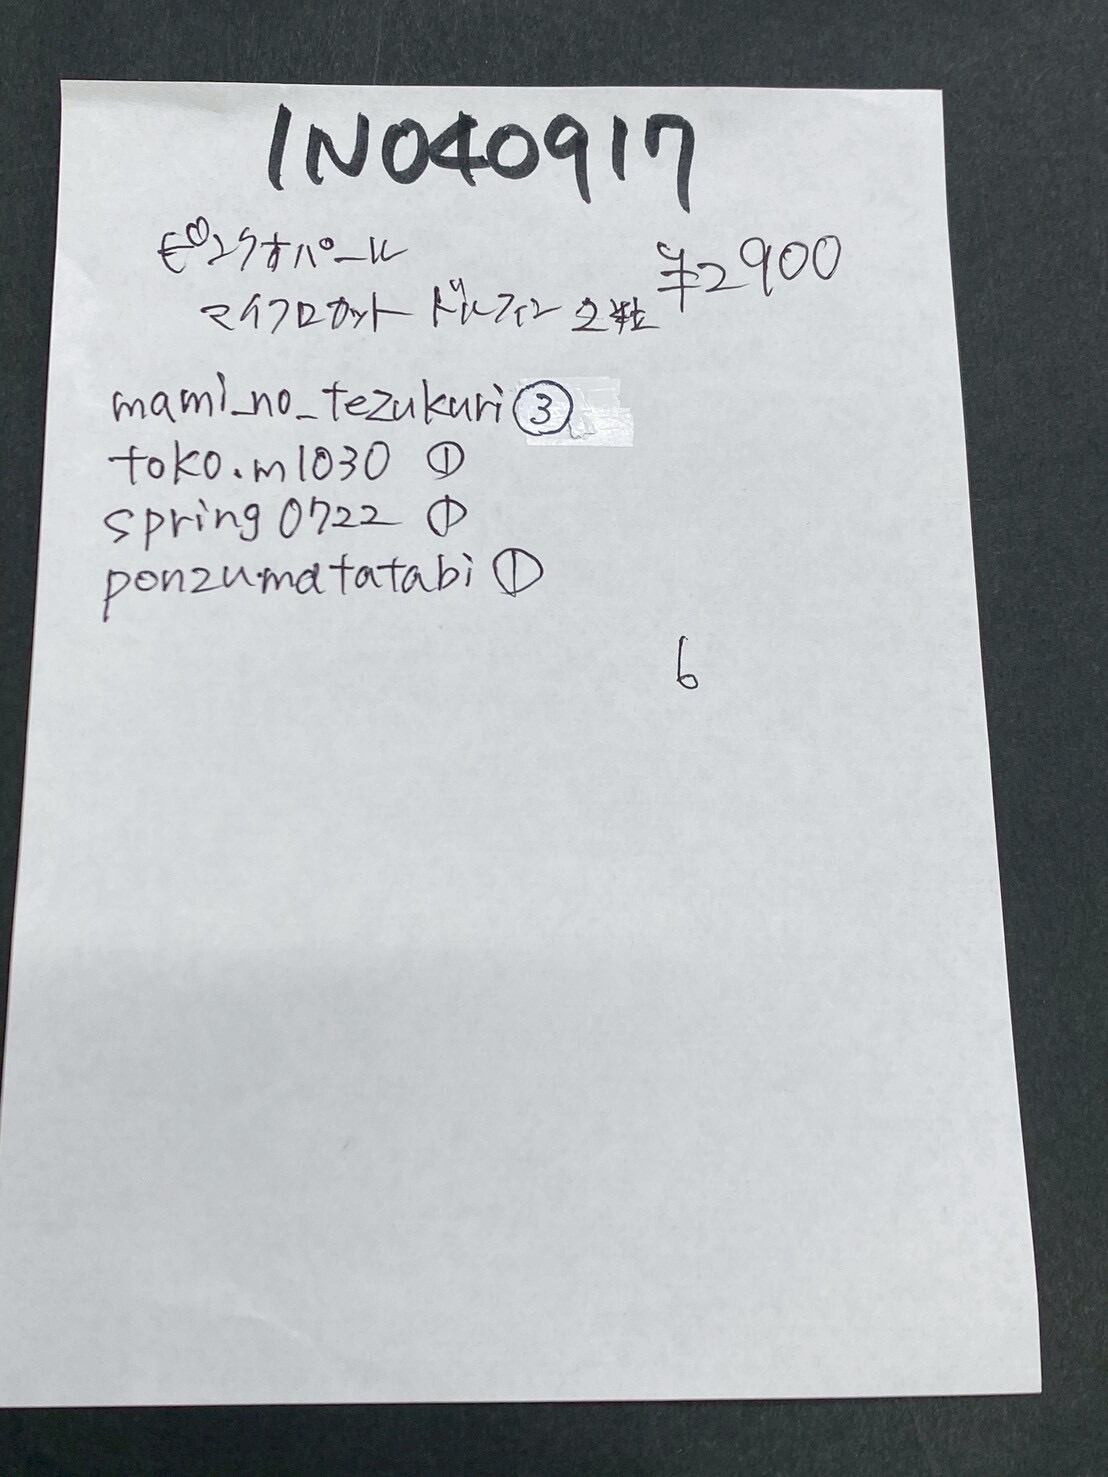 INO40917
ピンクオパール
マイクロカット ドルフィン 2粒 ¥2900
mami_no_tezukuri ③
toko.m1030 ①
spring0722 ①
ponzumatatabi ①
6